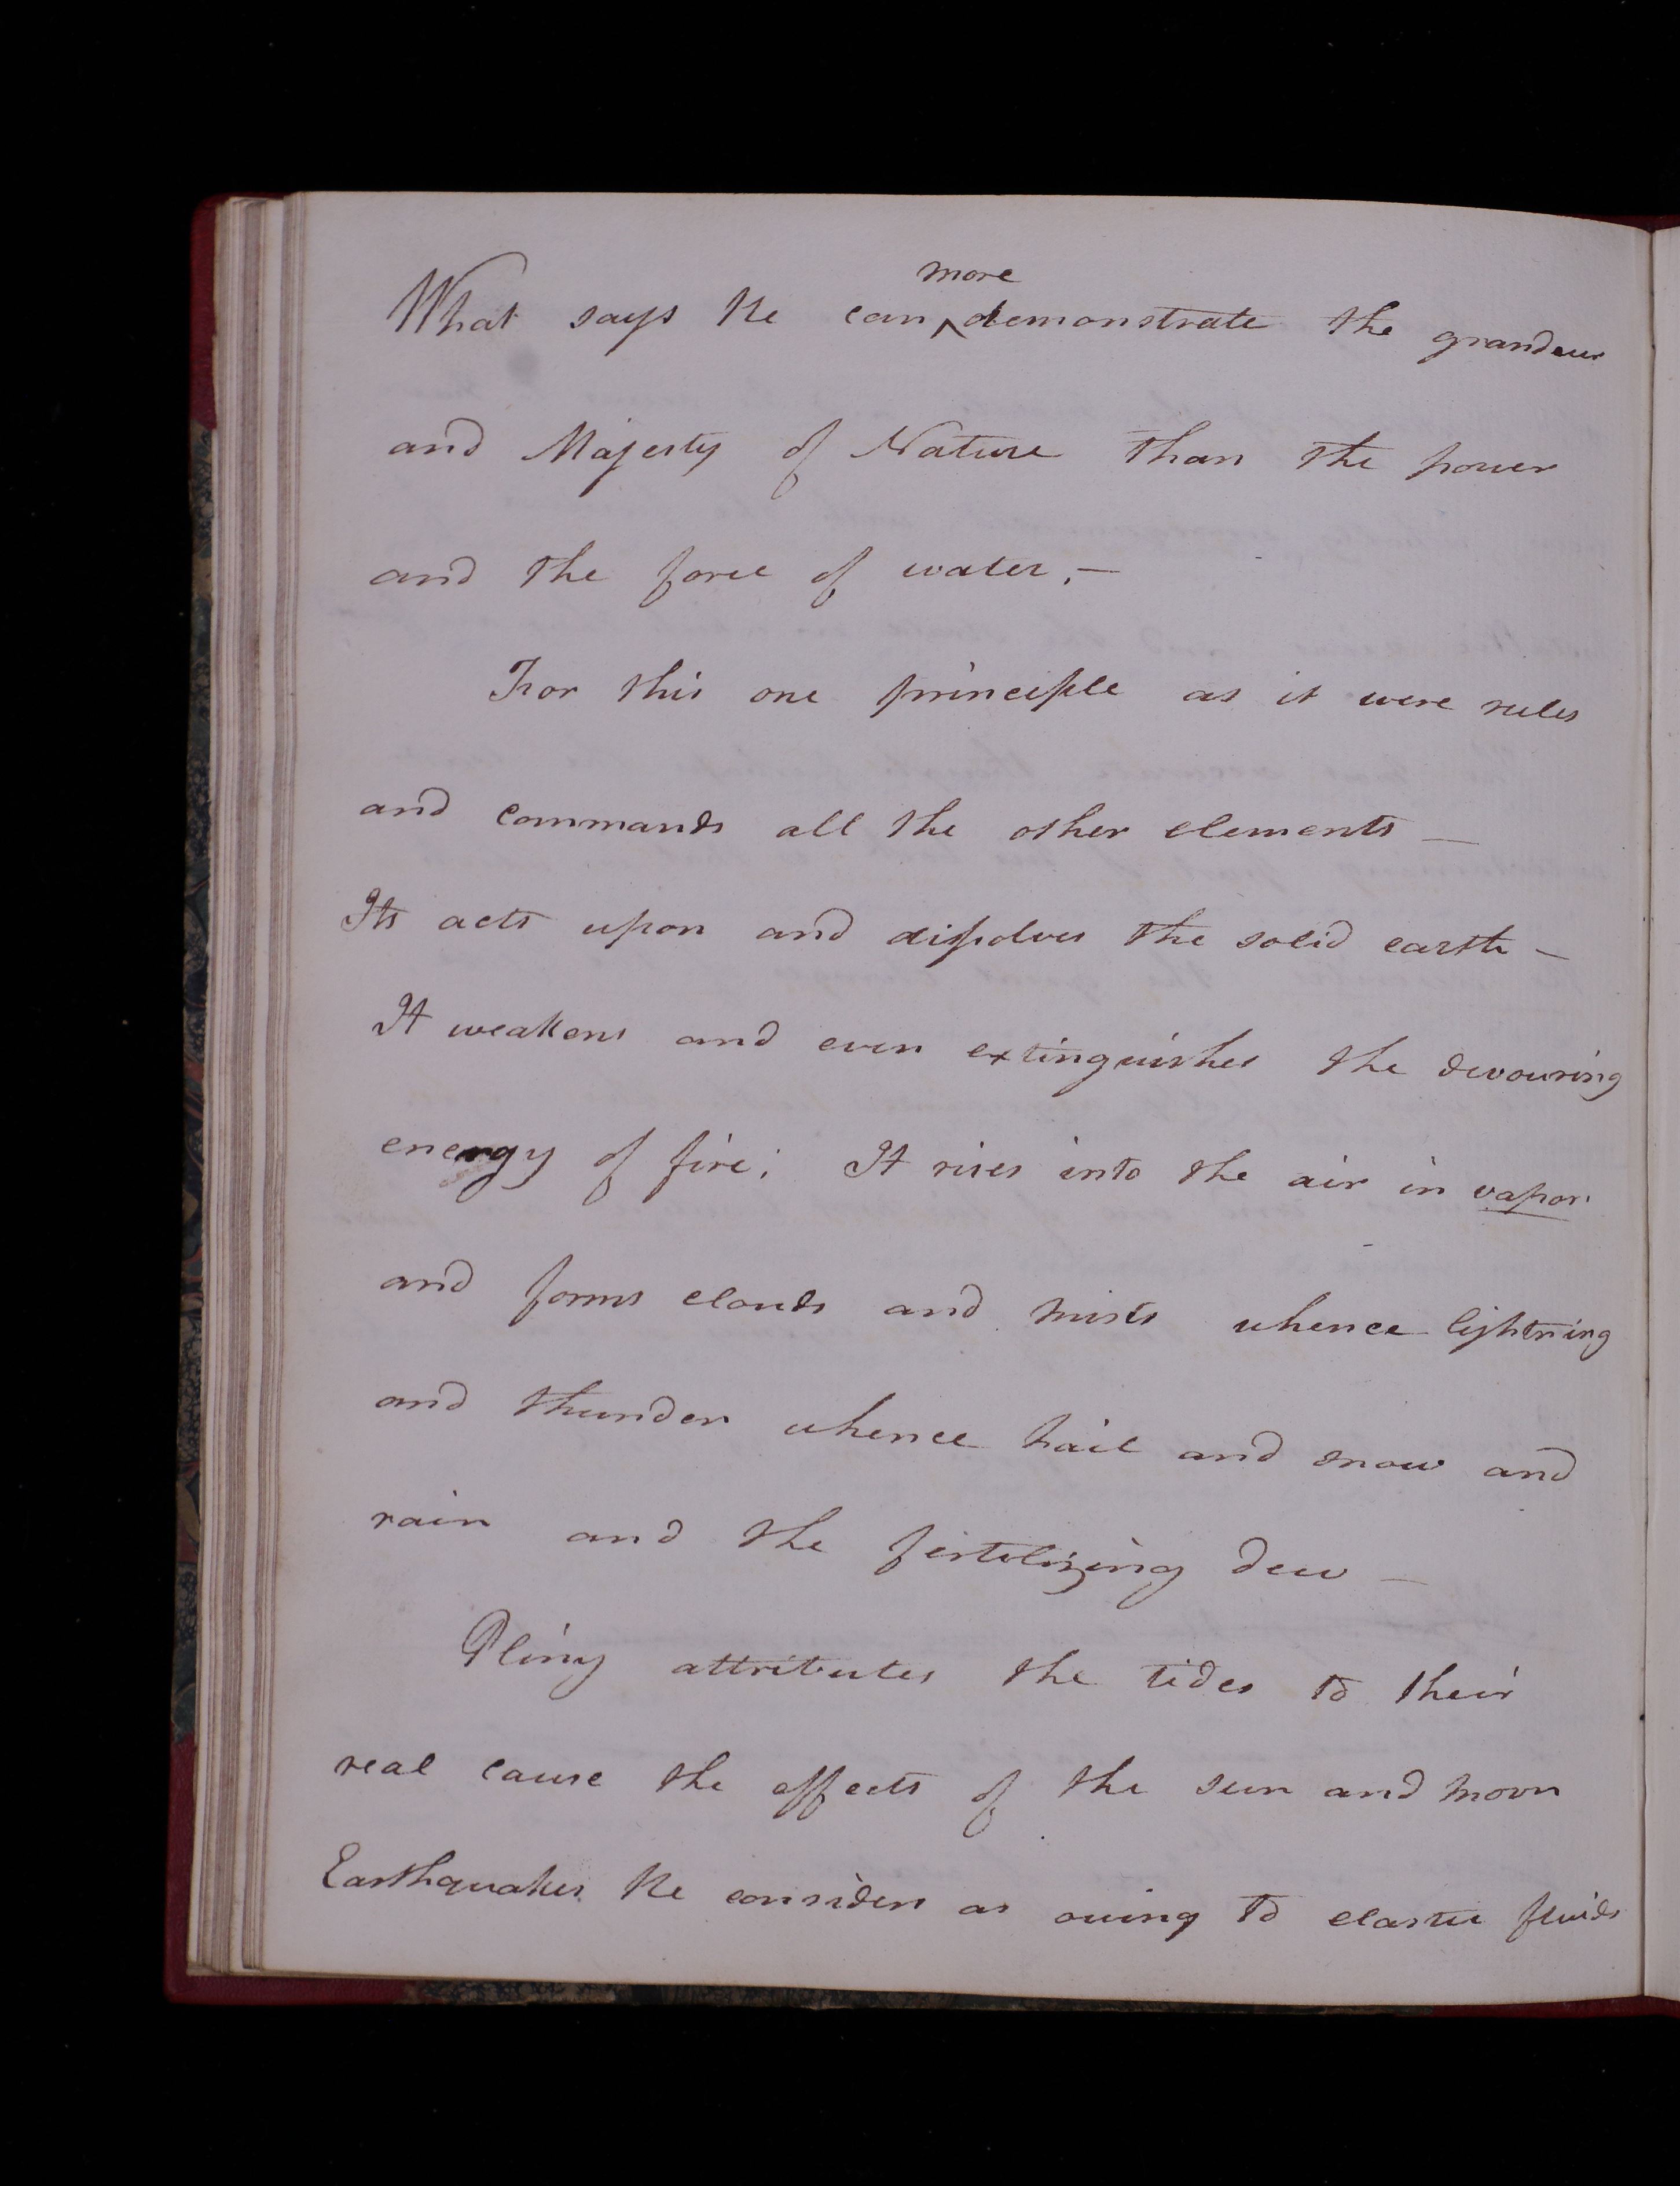 What says he can ^more demonstrate the grandeur
and Majesty of Nature than the power
and the force of water.—
For this one principle as it were rules
and commands all the other elements —
Its acts upon and dissolves the solid earth —
It weakens and even extinguishes the devouring
energy of fire; It rises into the air in vapor
and forms clouds and mists whence lightning
and thunder whence hail and snow and
rain and the fertilizing dew —
Pliny attributes the tides to their
real cause the effects of the sun and moon
Earthquakes he considers as owing to elastic fluids